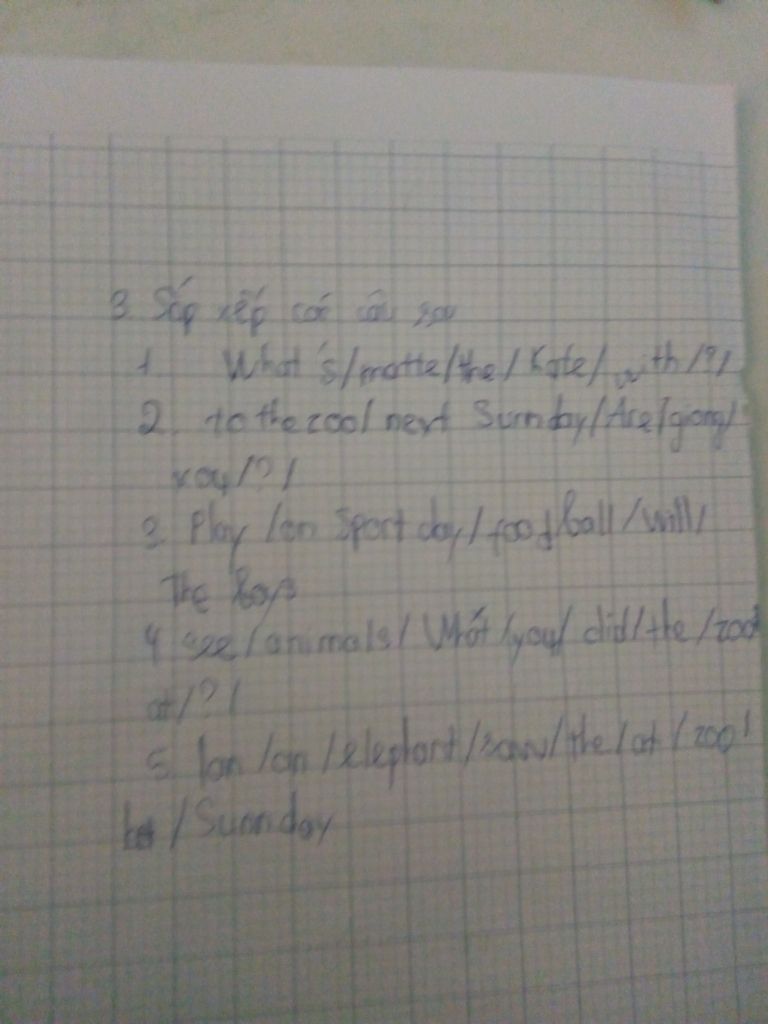 3. Sắp xếp các câu sau
1. What's/matte/the/Kate/with/?/
2. to the zoo/ next Sunnday/Are/giong/
you/?/
3. Play/on Sport day/foodball/will/
The Boys
4 see/animals/What/you/did/the/zoo/
at/?/
5. Ian/an/elephant/saw/the/at/zoo/
/Sunnday